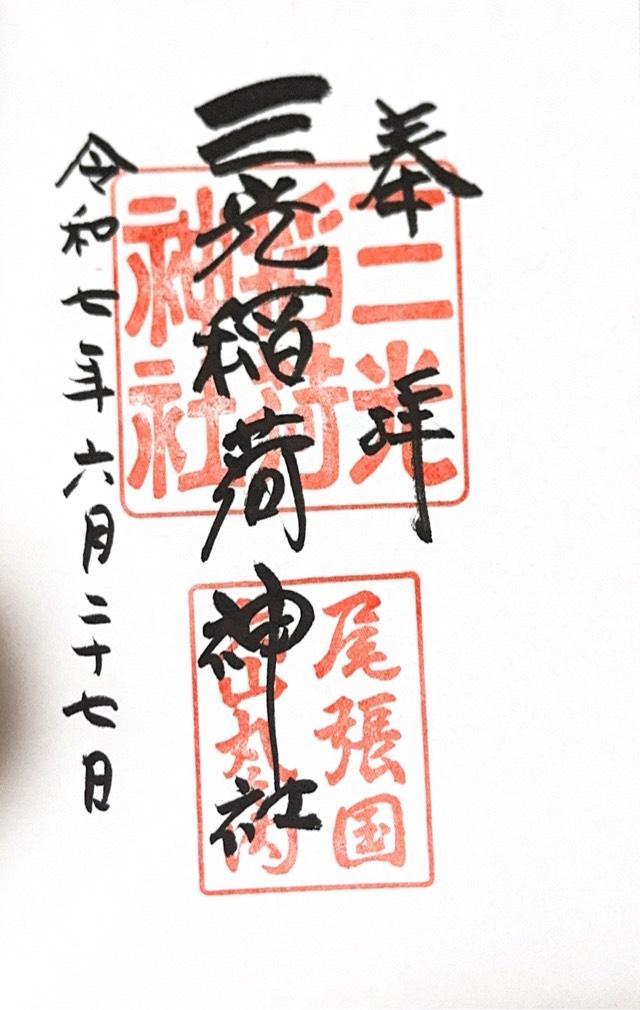 奉拝
三光稲荷神社
令和七年六月二十七日
三光
稲荷
神社
尾張国
犬山丸の内